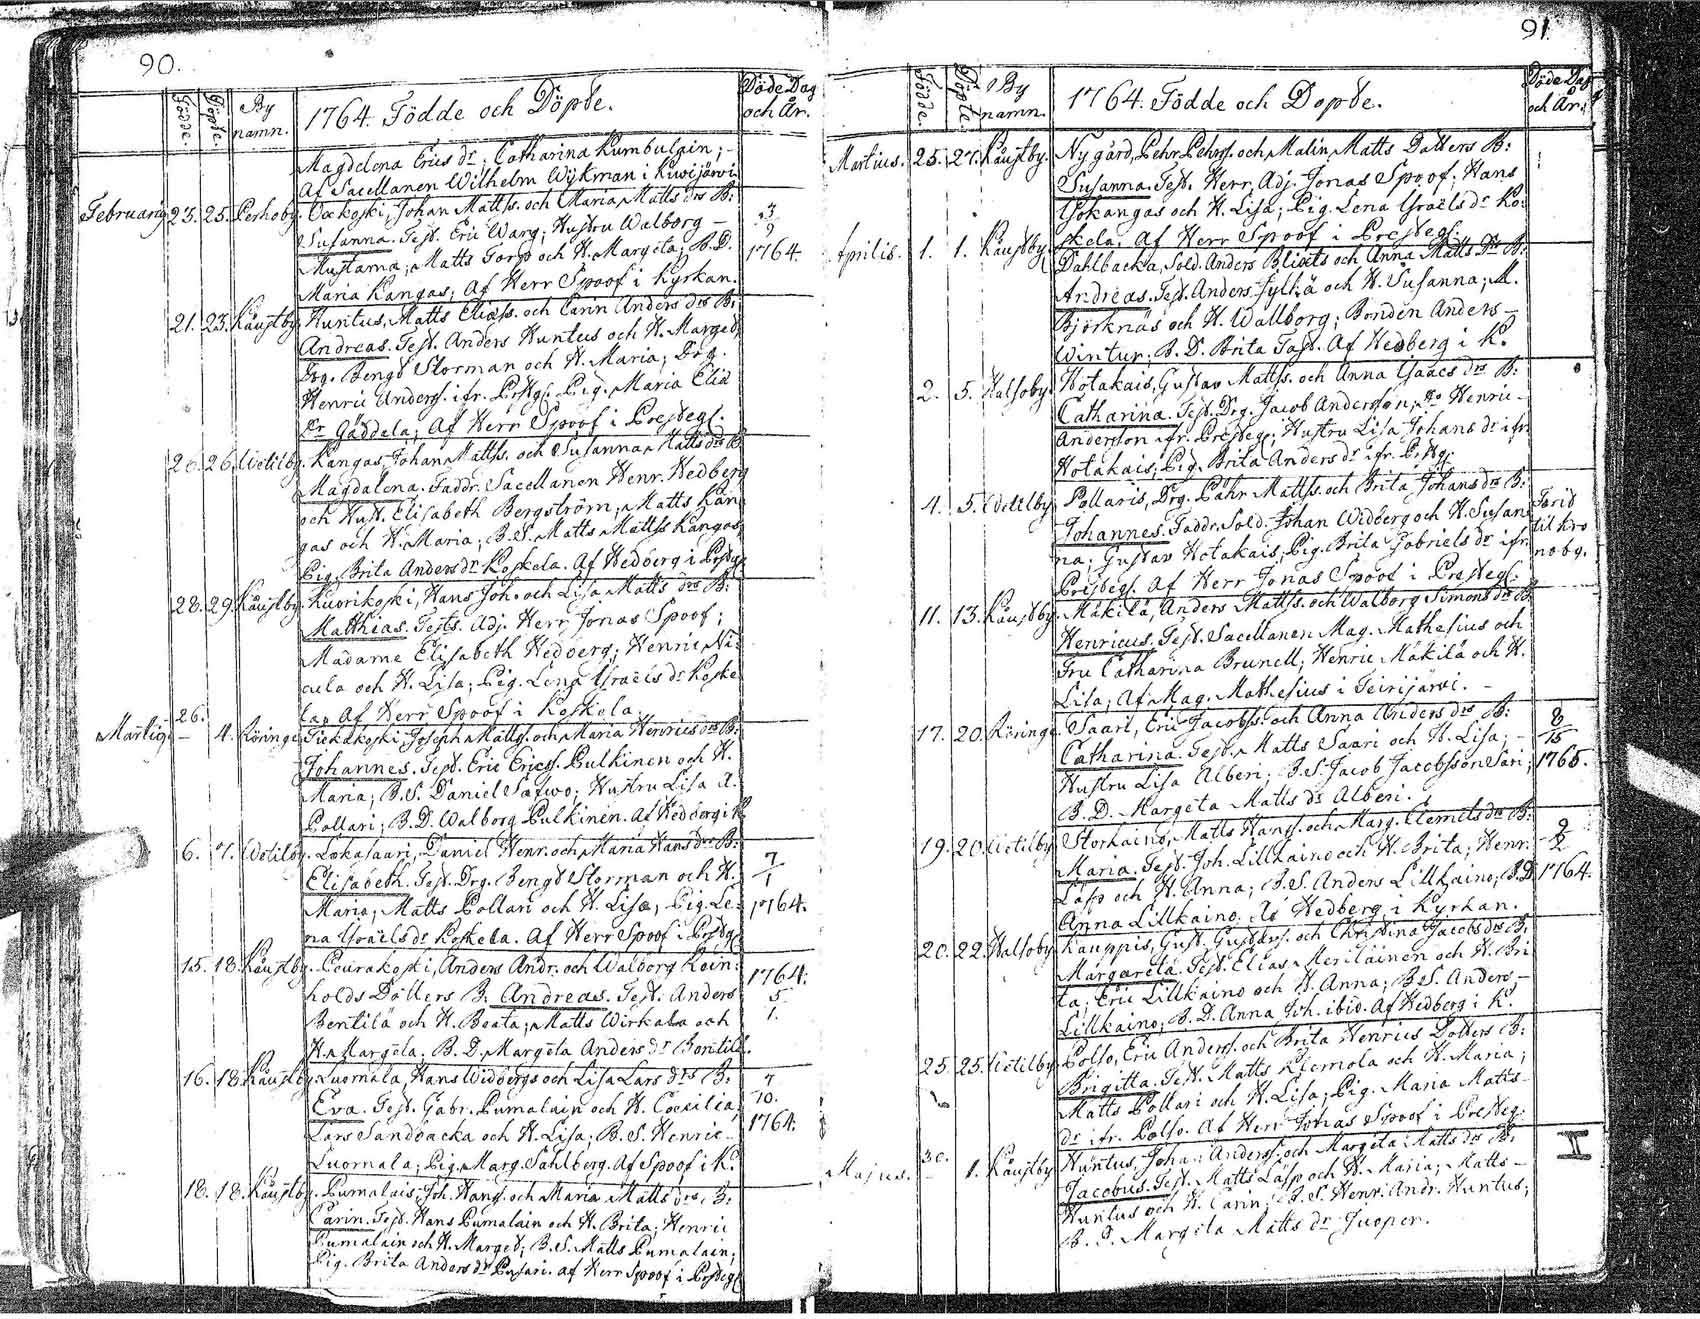 90.
Födde.
Döpte.
By
namn.
1764. Födde och Döpte.
Döde Dag
och År.
Magdelena Erics dr; Catharina Kumbulain;
Af Sacellanen Wilhelm Wijkman i Kiwijärwi
Februarij 23. 25. Perhoby. Oxkoski, Johan Mattss. och Maria Matts drs B:
Susanna. Test. Eric Warg; Hustru Walborg –
Mustama; Matts Torp och H. Margeta; B. D.
Maria Kangas; Af Herr Spoof i Kyrkan.
3
9
1764.
21. 23. Käustby. Huntus, Matts Eliæss. och Carin Anders drs B:
Andreas. Test. Anders Huntus och H. Marged,
Drg. Bengd Storman och H. Maria; Drg.
Henric Anderss. i fr. Prestg. Pig. Maria Elid
dr Gäddela; Af Herr Spoof i Prestegl.
26. 26. Wetilby. Kangas, Johan Mattss. och Susanna Matts drs B.
Magdalena. Faddr. Sacellanen Henr. Hedberg
och Hust. Elisabeth Bergström; Matts Kan
gas och H. Maria; B. S. Matts Mattss Kangas,
Pig. Brita Anders dr Koskela. Af Hedberg i Prestg.
28. 29. Käustby. Kuorikoski, Hans Joh. och Lisa Matts drs B:
Matthias. Tests. Adj. Herr Jonas Spoof;
Madame Elisabeth Hedberg; Henric Ni
cula och H. Lisa; Pig. Lena Israels dr Koske
la; Af Herr Spoof i Koskela.
26.
Martij. – 4. Röringe. Tiekakoski Joseph Mattss. och Maria Henrics drs B:
Johannes. Test. Eric Ericss. Pulkinen och H.
Maria; B. S. Daniel Safwo; Hustru Lisa A.
Pollari; B. D. Walborg Pulkinen. Af Hedberg i K
6. 7. Wetilby. Lokasaari, Daniel Henr. och Maria Hans drs B:
Elisabeth. Test. Drg. Bengd Storman och H.
Maria; Matts Pollari och H. Lisa; Pig. Le:
na Israels dr Koskela. Af Herr Spoof i Prestg
7
1
1764.
15. 18. Käustby. Peurakoski, Anders Andr. och Walborg Rein:
holds Dotters B: Andreas. Test. Anders
Bentilä och H. Beata; Matts Wirkala och
H. Margeta; B. D. Margeta Anders dr Bentilä.
1764.
5
1.
16. 18. Käustby. Luomala, Hans Widbergs och Lisa Lars drs B:
Eva. Test. Gabr. Pumalain och H. Coecilia;
Lars Sandbacka och H. Lisa; B. S. Henric
Luomala; Pig. Marg. Sahlberg. Af Spoof i K.
7
10.
1764.
18. 18. Käustby. Pumalais, Joh. Hanss. och Maria Matts drs B:
Carin. Test. Hans Pumalain och H. Brita; Henric
Pumalain och H. Marged; B. S. Matts Pumalain;
Pig. Brita Anders dr Pusari. af Herr Spoof i Prestegl
91
Födde.
Döpte.
By
namn.
1764. Födde och Döpte.
Döde Dag
och År.
Martius. 25. 27. Käustby. Nygård, Pehr Pehrss. och Malin Matts Dotters B:
Susanna. Test. Herr Adj. Jonas Spoof; Hans
Isokangas och H. Lisa; Pig. Lena Israels dr Ko:
skela; Af Herr Spoof i Prestegl.
Aprilis. 1. 1. Käustby. Dahlbacka, Sold. Anders Blixts och Anna Matts Dr B:
Andreas. Test. Anders Syljä och H. Susanna; M.
Björknäs och H. Wallborg; Bonden Anders –
Wintur; B. D. Brita Tast. Af Hedberg i K.
2. 5. Halsoby. Hotakais, Gustav Mattss. och Anna Isaacs drs B:
Catharina. Test. Drg. Jacob Andersson, do Henric
Andersson i fr. Presteg; Hustru Lisa Johans dr i fr.
Hotakais; Pig. Brita Anders dr i fr. Prstg:
4. 5. Wetilby Pollaris, Drg. Pähr Mattss. och Brita Johans drs B:
Johannes. Faddr. Sold. Johan Widberg och H. Susan
na; Gustav Hotakais; Pig. Brita Gabriels dr i fr.
Prestegl. Af Herr Jonas Spoof i Prestegl:
Farid
til Kro
noby.
11. 13. Käustby. Mäkilä, Anders Mattss. och Walborg Simons dr B:
Henricus. Test. Sacellanen Mag. Mathesius och
Fru Catharina Brunell; Henric Mäkilä och H.
Lisa; Af Mag. Mathesius i Teirijärwi. –
17. 20. Röringe. Saari, Eric Jacobss. och Anna Anders drs B:
Catharina. Test. Matts Saari och H. Lisa; –
Hustru Lisa Alberi; B. S. Jacob Jacobsson Sari;
B. D. Margeta Matts dr Alberi.
8
15
1765.
19. 20. Wetilby Storkaino, Matts Hanss. och Marg. Clemets drs B:
Maria. Test. Joh. Lillkaino och H. Brita; Henr.
Lasp och H. Anna; B. S. Anders Lillkaino; B. D
Anna Lillkaino. Af Hedberg i Kyrkan.
9
2
1764.
20. 22. Halsoby Kauppis, Gust. Gustavss. och Christina Jacobs drs B:
Margareta. Test. Elias Meriläinen och H. Bri
ta; Eric Lillkaino och H. Anna; B. S. Anders –
Lillkaino; B. D. Anna Joh. ibid. Af Hedberg i K.
25. 25. Wetilby Polso, Eric Anderss. och Brita Henrics Dotters B:
Brigitta. Test. Matts Klemola och H. Maria;
Matts Pollari och H. Lisa; Pig. Maria Matts
dr i fr. Polso. Af Herr Jonas Spoof i Presteg.
30.
Majus. – 1. Käustby Huntus, Johan Anderss. och Margeta Matts drs B:
Jacobus. Test. Matts Läsp och H. Maria; Matts –
Huntus och H. Carin; B. S. Henr. Andr. Huntus;
B. D. Margeta Matts dr Juoper.